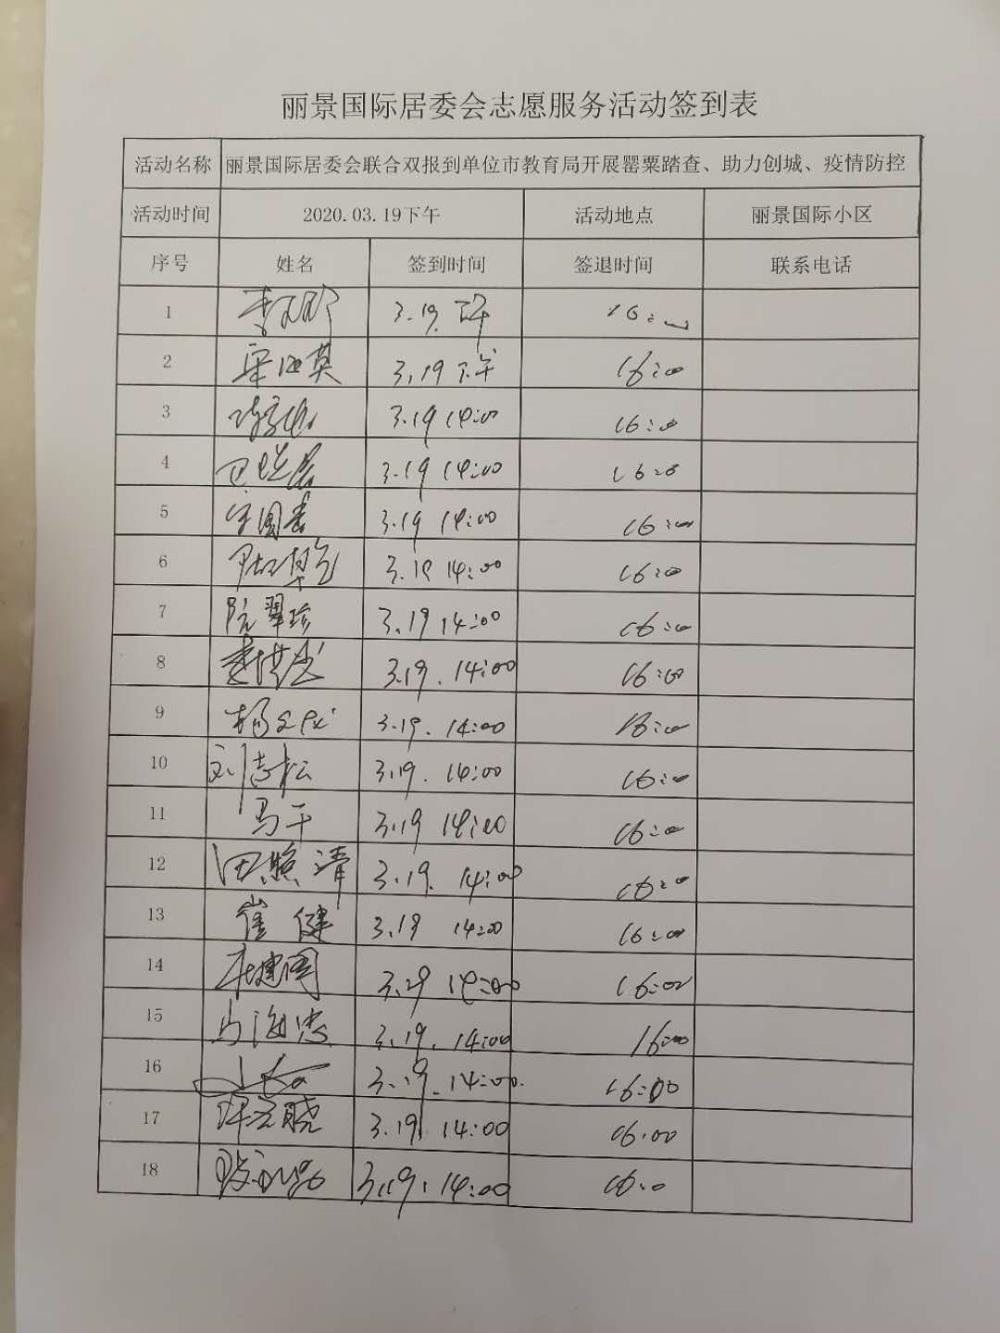 丽景国际居委会志愿服务活动签到表
活动名称 丽景国际居委会联合双报到单位市教育局开展罂粟踏查、助力创城、疫情防控
活动时间 2020.03.19下午 活动地点 丽景国际小区
序号 姓名 签到时间 签退时间 联系电话
1 3.19.下午 16:00
2 3.19 下午 16:00
3 3.19 14:00 16:00
4 3.19 14:00 16:00
5 3.19 14:00 16:00
6 3.19 14:00 16:00
7 阮翠珍 3.19 14:00 16:00
8 3.19. 14:00 16:00
9 3.19. 14:00 16:00
10 刘志松 3.19. 14:00 16:00
11 马干 3.19 14:00 16:00
12 田照清 3.19. 14:00 16:00
13 崔健 3.19 14:00 16:00
14 3.19 14:00 16:00
15 马海忠 3.19. 14:00 16:00
16 3.19. 14:00. 16:00
17 3.19 14:00 16:00
18 3.19. 14:00 16:0